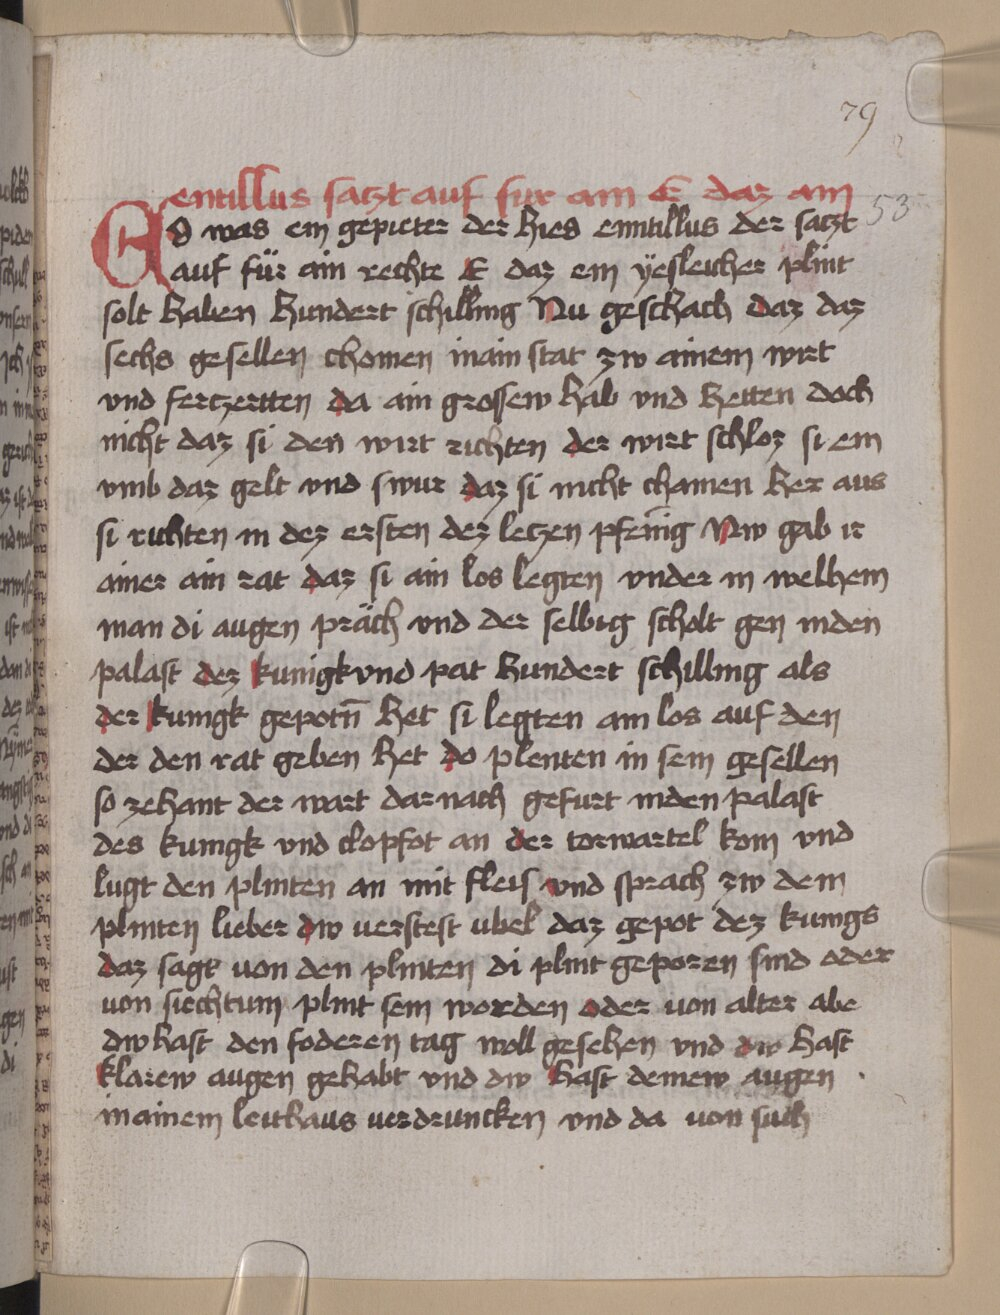 79
53
entillus satzt auf fur ain E daz ain
Es was ein gepieter der hies emitillus der satzt
auf für ain rechte E daz ein yesleicher plint
solt haben hundert schilling Nu geschach daz daz
sechs gesellen chomen in ain stat zw ainem wirt
vnd ferczertten da ain grossew hab vnd hetten doch
nicht daz si den wirt richten der wirt schloz si ein
vmb daz gelt vnd swur daz si nicht chamen her aus
si richten in dez ersten dez leczen pfenig Nw gab ir
ainer ain rat daz si ain los legten vnder in welhem
man di augen präch vnd der selbig scholt gen inden
palast dez kunigk vnd pat hundert schilling als
der kunigk gepotn̄ het si legten ain los auf den
der den rat geben het do plenten in sein gesellen
so zehant der wart darnach gefurt inden palast
des kunigk vnd clopfot an der torwartel kom vnd
lugt den plinten an mit fleis vnd sprach zw dem
plinten lieber dw verstest vbel daz gepot dez kunigs
daz sagt von den plinten di plint geporen sind oder
von siechtum plint sein worden oder von alter abe
dw hast den foderen tag woll gesehen vnd dw hast
klarew augen gehabt vnd dw hast deinew augen
in ainem leithaus verdruncken vnd da von such